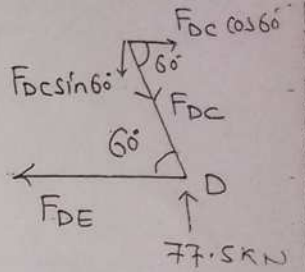 F_DC cos60°
60°
F_DC sin60°
F_DC
60°
D
F_DE
77.5KN